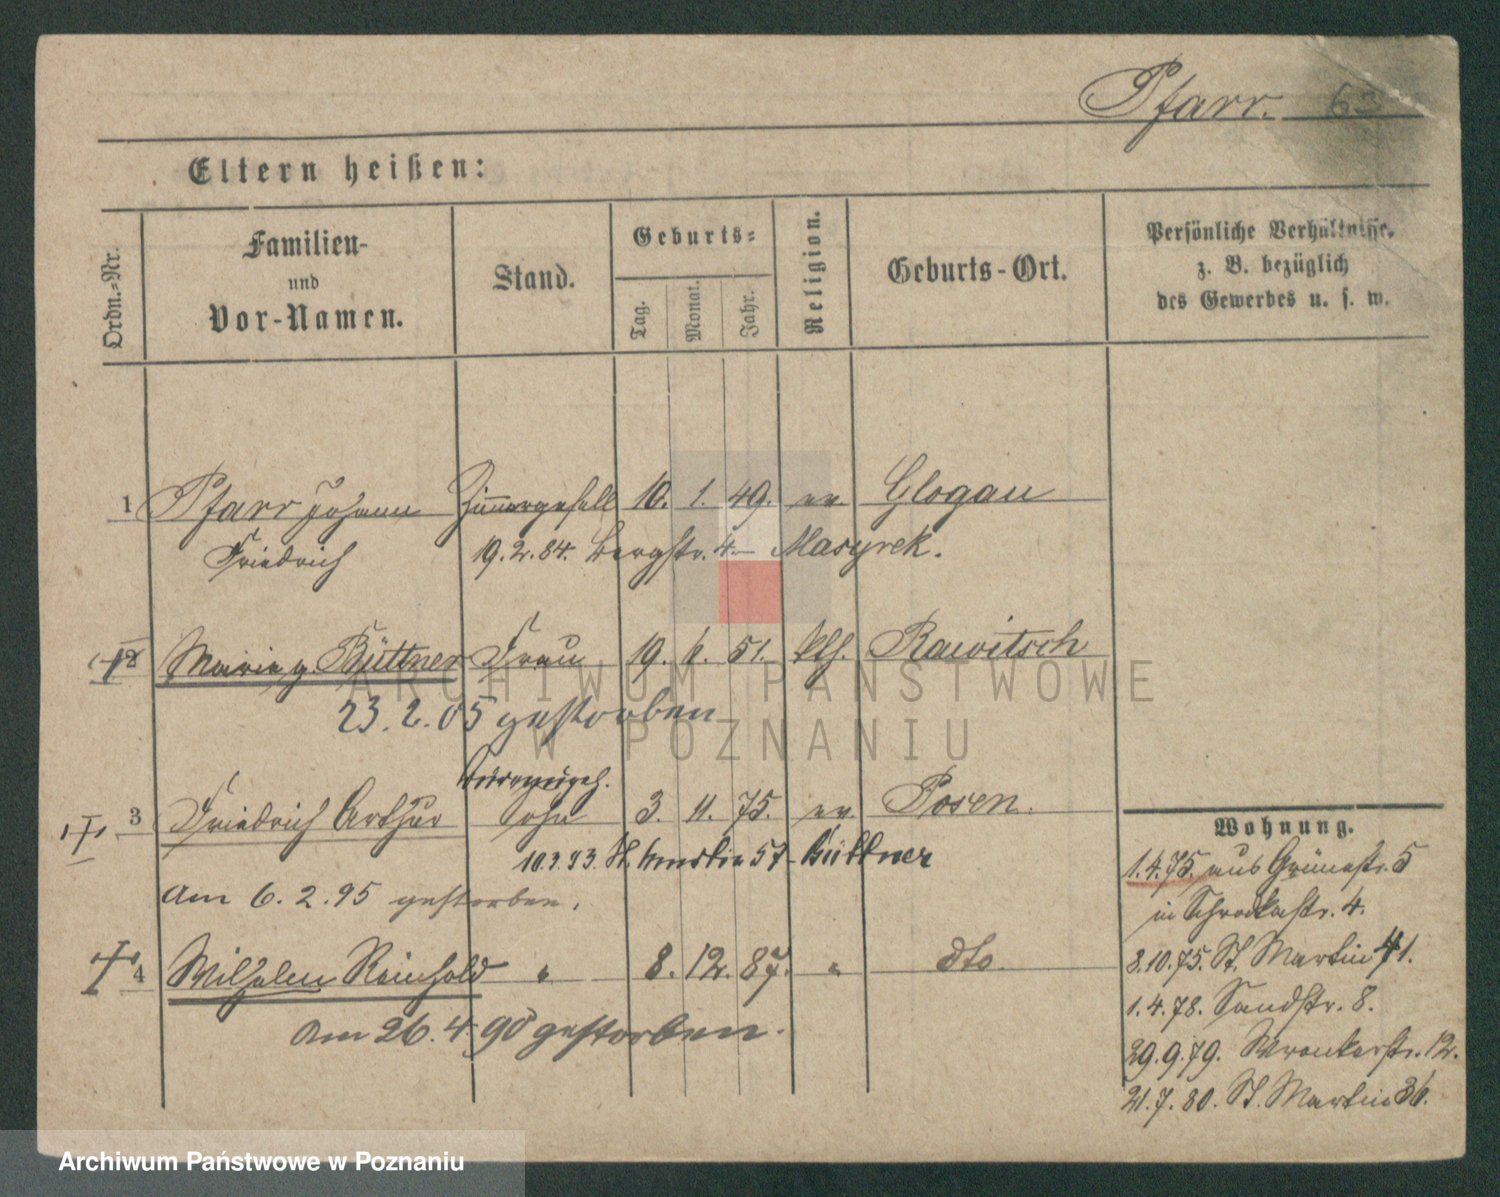 Pfarr.
Eltern heißen:
Ordn.-Nr.
Familien- und Vor-Namen.
Stand.
Geburts-
Tag.
Monat.
Jahr.
Religion.
Geburts-Ort.
Persönliche Verhältnisse, z. B. bezüglich des Gewerbes u. s. w.
1 Pfarr Johann Zimmergesell 10. 1. 49. ev Glogau
Friedrich 19.2.84. Bergstr. 4. Masyrek.
2 Maria g. Büttner Frau 19. 6. 51. kth. Rawitsch
23.2.05 gestorben
3 Friedrich Arthur Sohn 3. 11. 75. ev Posen.
10.3.93. St. Martin 57 Büttner
am 6.2.95 gestorben.
4 Wilhelm Reinhold " 8. 12. 87. " dto.
am 26.4.90 gestorben.
Wohnung.
1.4.75. aus Grünestr. 5
in Schrodkastr. 4.
8.10.75. St. Martin 41.
1.4.78. Sandstr. 8.
29.9.79. Wronkerstr. 12.
21.7.80. St. Martin 36.
ARCHIWUM PAŃSTWOWE
W POZNANIU
Archiwum Państwowe w Poznaniu